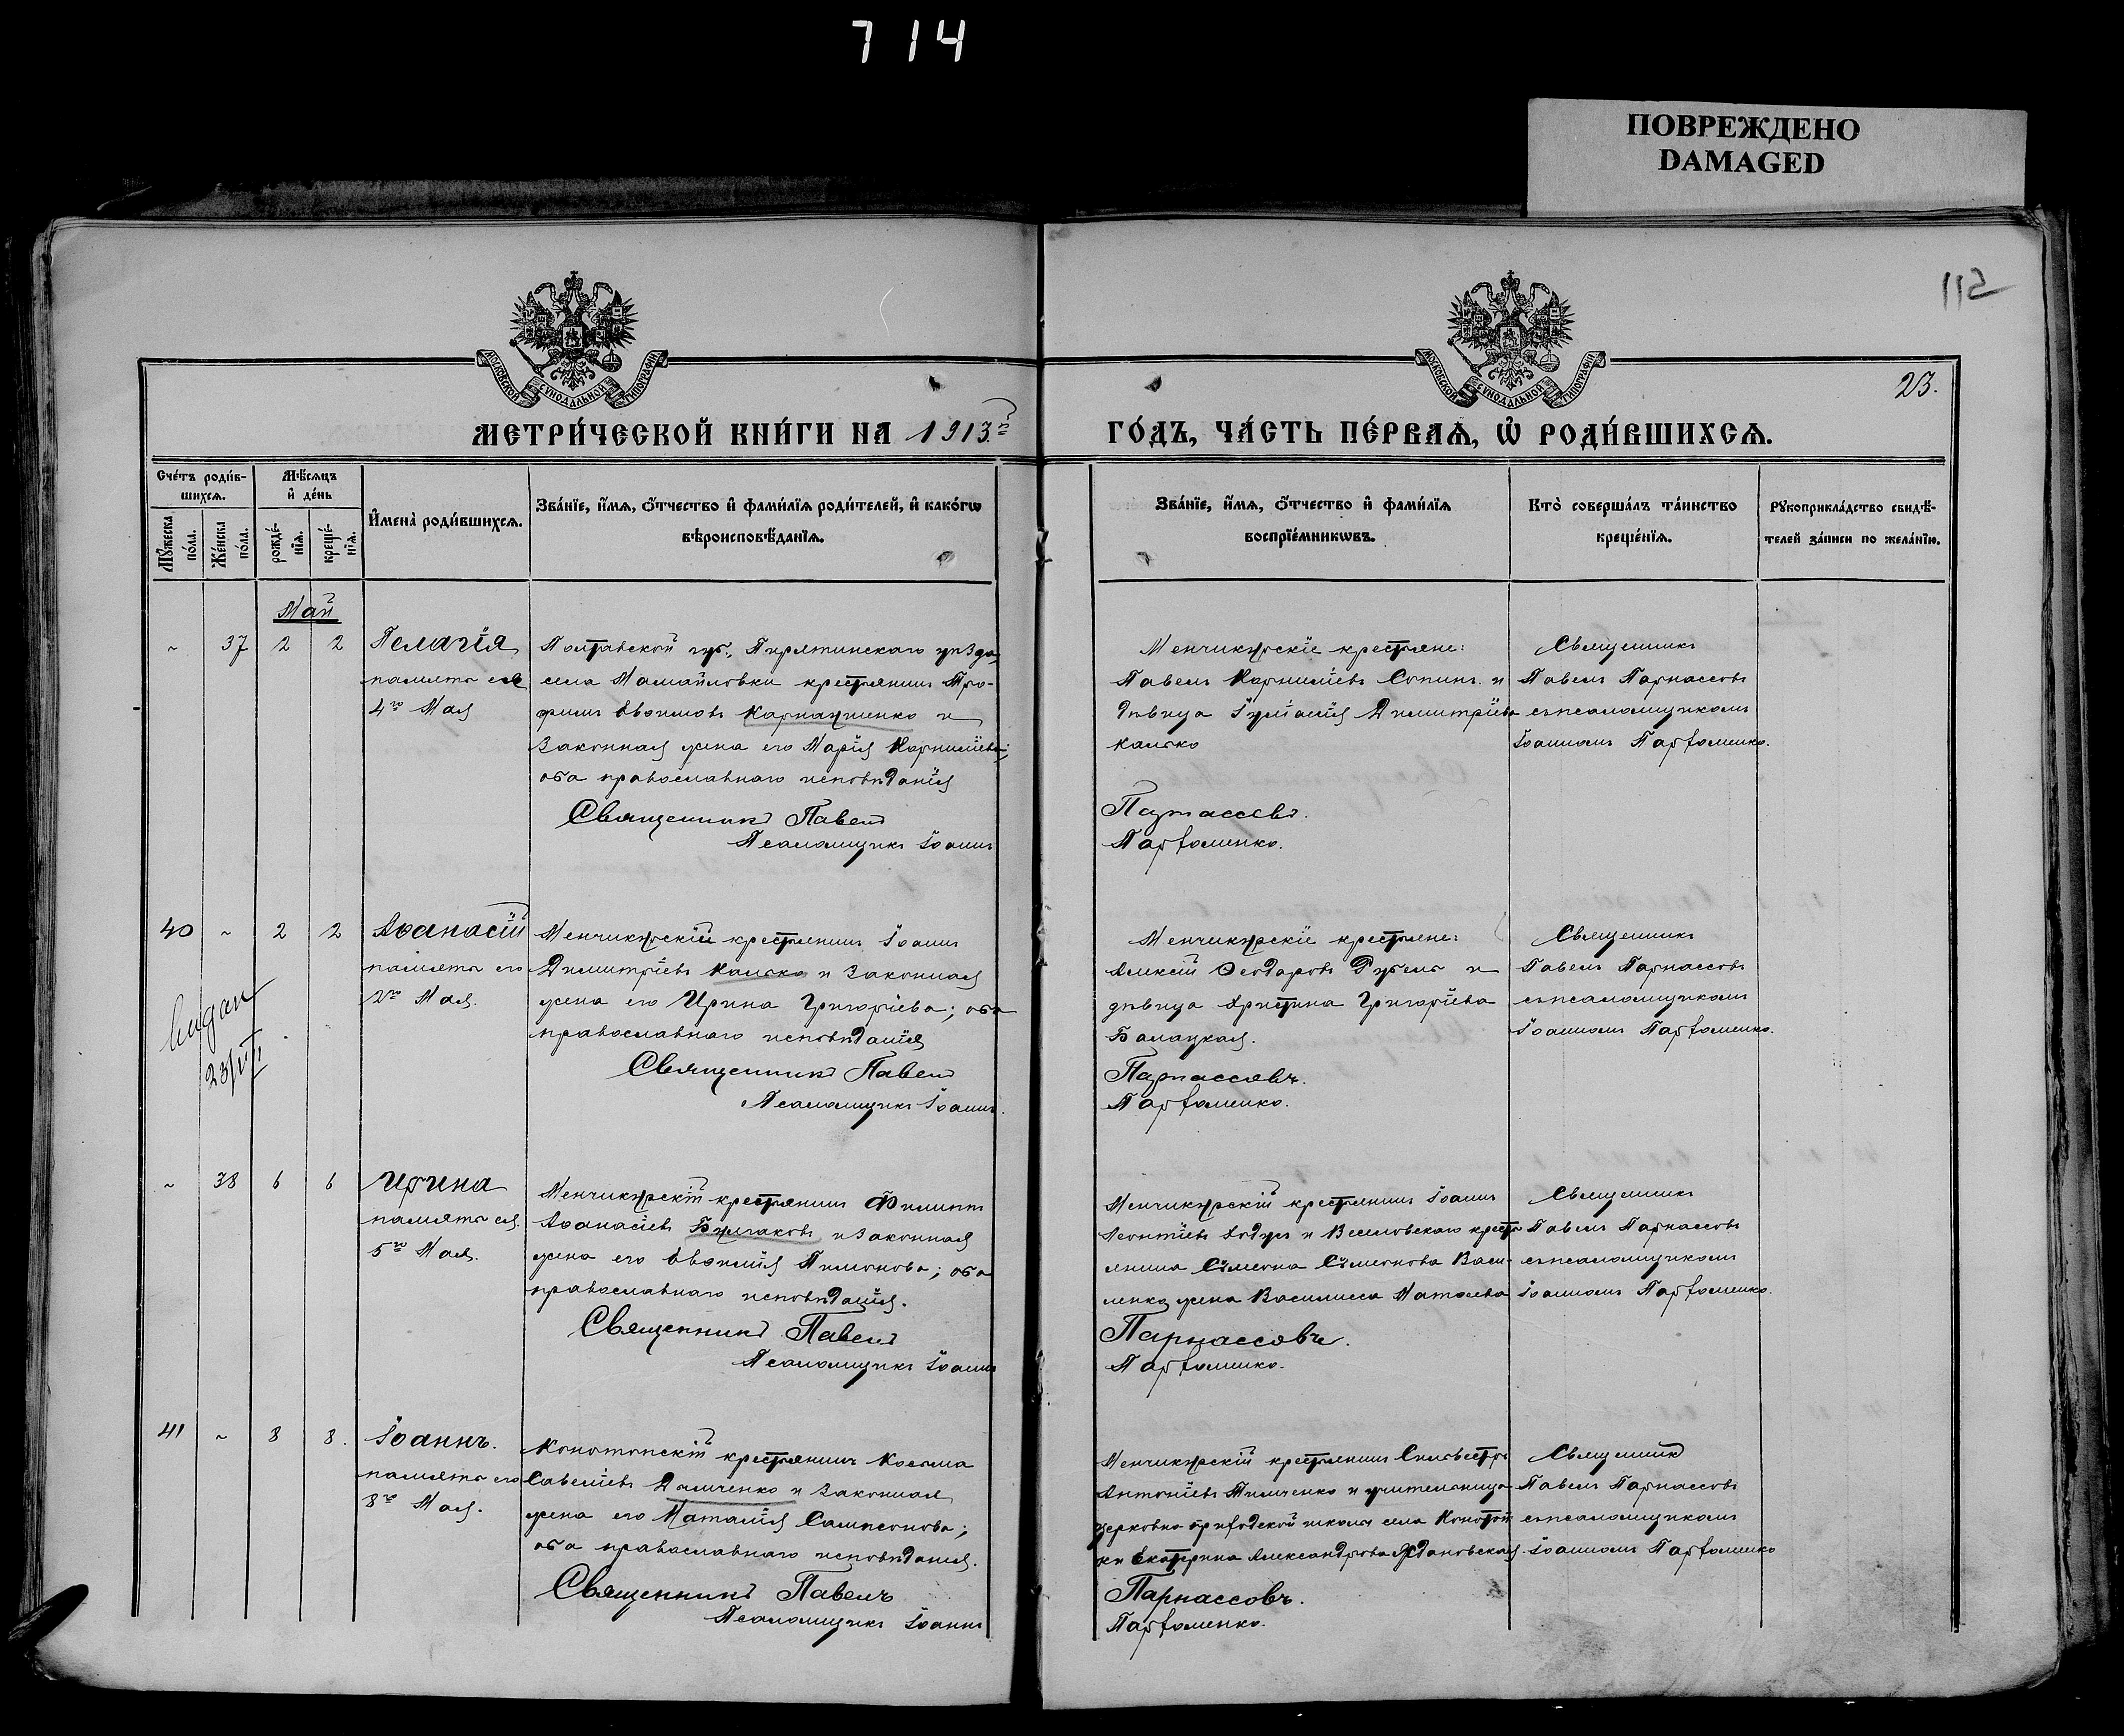 714
ПОВРЕЖДЕНО
DAMAGED
112
МОСКОВСКОЙ СУНОДАЛЬНОЙ ТИПОГРАФІИ
МОСКОВСКОЙ СУНОДАЛЬНОЙ ТИПОГРАФІИ
23.
МЕТРИ́ЧЕСКОЙ КНИ́ГИ НА 1913й
ГО́ДЪ, ЧА́СТЬ ПЕ́РВАѦ, Ѡ҆ РОДИ́ВШИХСѦ.
Сче́тъ роди́в-
шихсѧ.
Мꙋ́жеска
по́ла.
Же́нска
по́ла.
Мѣ́сѧцъ
и҆ де́нь
рожде́-
нїѧ.
креще́-
нїѧ.
И҆мена̀ роди́вшихсѧ.
Зва́нїе, и҆́мѧ, ѻ҆́тчество и҆ фами́лїѧ роди́телей, и҆ како́гѡ
вѣроисповѣ́данїѧ.
Зва́нїе, и҆́мѧ, ѻ҆́тчество и҆ фами́лїѧ
воспрїе́мникѡвъ.
Кто̀ соверша́лъ та́инство
креще́нїѧ.
Рꙋкоприкла́дство свидѣ́-
телей за́писи по жела́нїю.
Май
~ 37 2 2 Пелагія
память ея
4го Мая
Полтавской губ., Пирятинскаго уѣзда,
села крестьянинъ Тро-
фимъ Евѳимовъ Карпаушенко и
законная жена его Марія Корниліева;
оба православнаго исповѣданія
Священникъ Павелъ
Псаломщикъ Іоаннъ
Менчикурскіе крестьяне:
Павелъ Корниліевъ Сопинъ и
дѣвица Іуліанія Димитріева
Калько
Парнассовъ.
Парѳоменко.
Священникъ
Павелъ Парнассовъ
съ псаломщикомъ
Іоанномъ Парѳоменко.
40 ~ 2 2 Аѳанасій
память его
2го Мая.
23/VII
Менчикурскій крестьянинъ Іоаннъ
Димитріевъ Калько и законная
жена его Ирина Григоріева; оба
православнаго исповѣданія
Священникъ Павелъ
Псаломщикъ Іоаннъ.
Менчикурскіе крестьяне:
Алексій Ѳеодоровъ Рубель и
дѣвица Христина Григоріева
Балацкая.
Парнассовъ.
Парѳоменко.
Священникъ
Павелъ Парнассовъ
съ псаломщикомъ
Іоанномъ Парѳоменко.
~ 38 6 6 Ирина
память ея
5го Мая.
Менчикурскій крестьянинъ Филиппъ
Аѳанасіевъ Булгаковъ и законная
жена его Евѳимія Пименова; оба
православнаго исповѣданія.
Священникъ Павелъ
Псаломщикъ Іоаннъ
Менчикурскій крестьянинъ Іоаннъ
Леонтіевъ Ходусъ и Веселовскаго кресть
янина Сѵмеона Сѵмеонова Васи-
ленко жена Василисса Матѳеева
Парнассовъ.
Парѳоменко.
Священникъ
Павелъ Парнассовъ
съ псаломщикомъ
Іоанномъ Парѳоменко.
41 ~ 8 8. Іоаннъ.
память его
8го Мая.
Конотопскій крестьянинъ Косьма
Савеліевъ Даниченко и законная
жена его Наталія Сампсонова;
оба православнаго исповѣданія.
Священникъ Павелъ
Псаломщикъ Іоаннъ
Менчикурскій крестьянинъ Сильвестръ
Антоніевъ Тимченко и учительница
церковно-приходской школы села Конотоп
ки Екатерина Александрова Ждановская.
Парнассовъ.
Парѳоменко.
Священникъ
Павелъ Парнассовъ
съ псаломщикомъ
Іоанномъ Парѳоменко